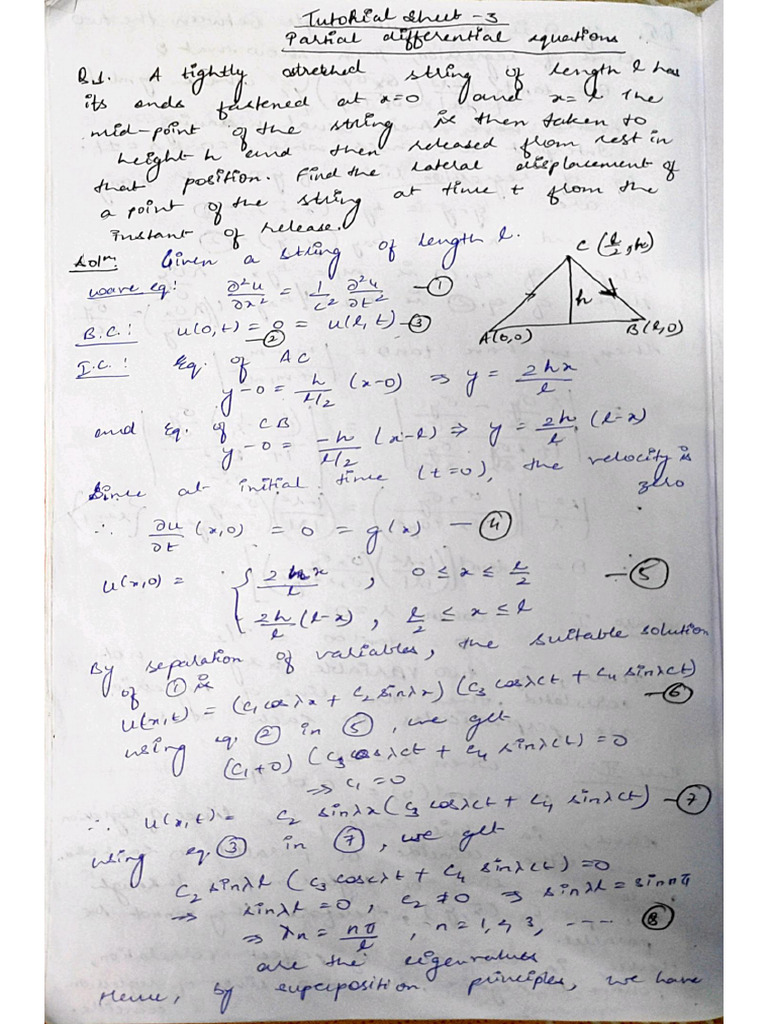 Tutorial sheet - 3
Partial differential equations
Q.1. A tightly stretched string of length l has
its ends fastened at x=0 and x=l The
mid-point of the string is then taken to
height h and then released from rest in
that position. Find the lateral displacement of
a point of the string at time t from the
instant of release.
Solⁿ: Given a string of length l.
wave eq: ∂²u/∂x² = 1/c² ∂²u/∂t² — ①
B.C.: u(0,t) = 0 = u(l,t) — ③
②
C (l/2, h)
h
A(0,0)
B(l,0)
I.C.: Eq. of AC
y-0 = h/(l/2) (x-0) ⇒ y = 2hx/l
and Eq. of CB
y-0 = -h/(l/2) (x-l) ⇒ y = 2h/l (l-x)
Since at initial time (t=0), the velocity is
zero
∴ ∂u/∂t (x,0) = 0 = g(x) — ④
u(x,0) = { 2hx/l , 0 ≤ x ≤ l/2 — ⑤
2h/l (l-x) , l/2 ≤ x ≤ l
By separation of variables, the suitable solution
of ① is
u(x,t) = (c₁ cosλx + c₂ sinλx) (c₃ cosλct + c₄ sinλct) — ⑥
using eq. ② in ⑤, we get
(c₁+0) (c₃ cosλct + c₄ sinλct) = 0
⇒ c₁ = 0
∴ u(x,t) = c₂ sinλx (c₃ cosλct + c₄ sinλct) — ⑦
using eq. ③ in ⑦, we get
c₂ sinλl (c₃ cosλct + c₄ sinλct) = 0
⇒ sinλl = 0, c₂ ≠ 0 ⇒ sinλl = sin nπ
⇒ λn = nπ/l , n = 1, 2, 3, ---- ⑧
are the eigenvalues
Hence, by superposition principles, we have